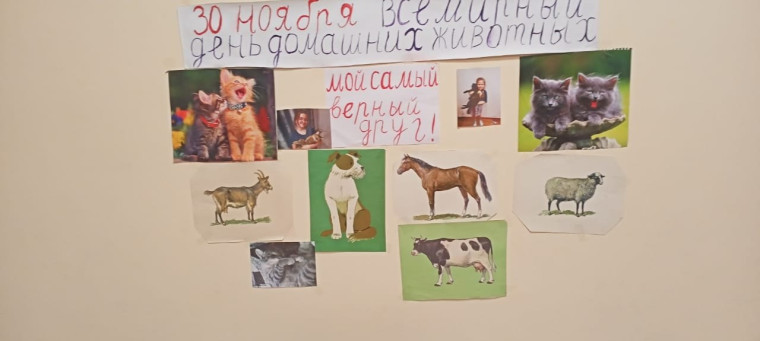 30 ноября Всемирный
день домашних животных
мой самый
верный
друг!